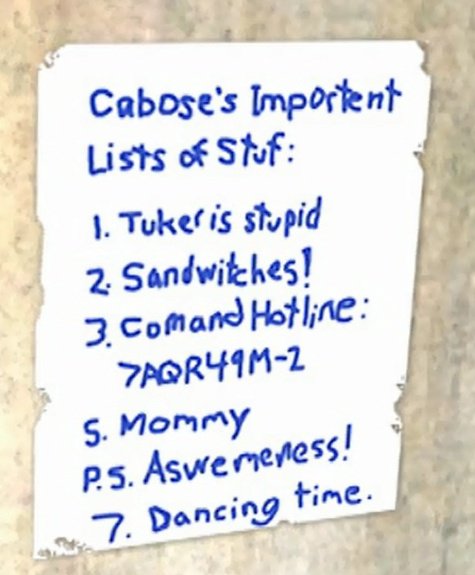 Cabose's Importent
Lists of Stuf:
1. Tuker is stupid
2. Sandwitches!
3. Comand Hotline:
7AQR49M-2
5. Mommy
P.S. Aswemeness!
7. Dancing time.